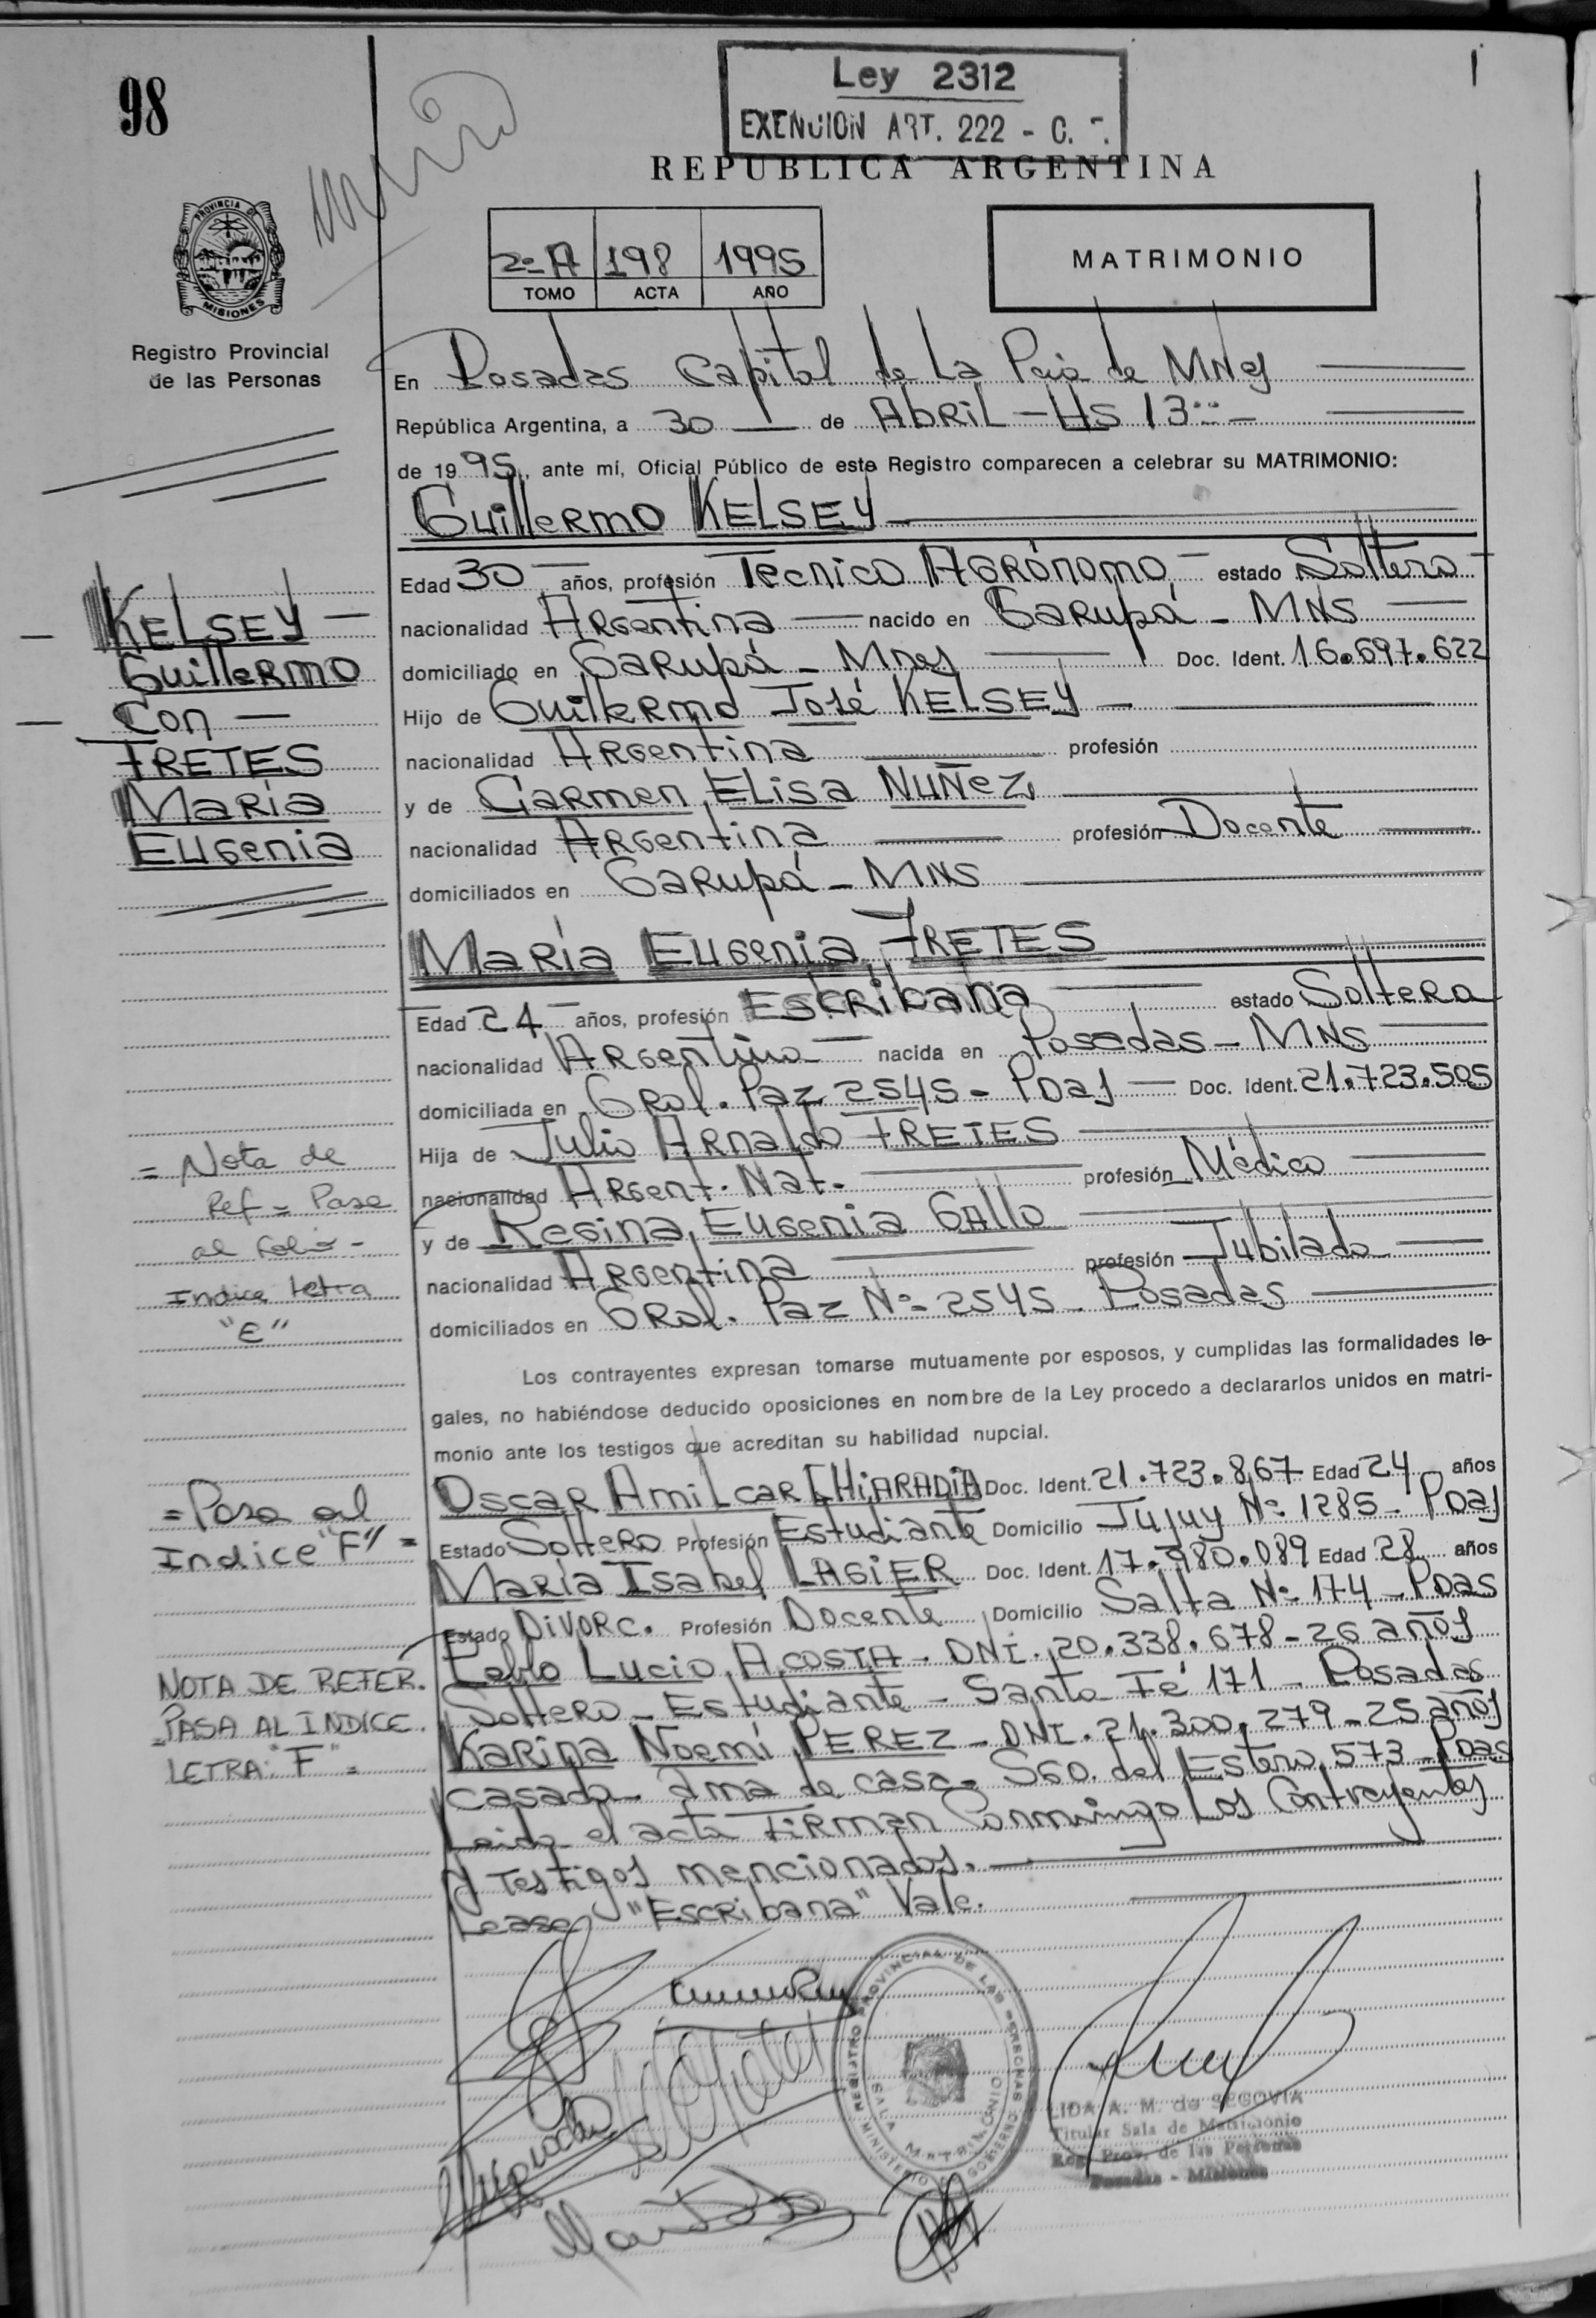 98
Ley 2312
EXENCION ART. 222 - C.
REPUBLICA ARGENTINA
PROVINCIA DE
MISIONES
Registro Provincial
de las Personas
2º A 198 1995
TOMO ACTA AÑO
MATRIMONIO
En Posadas Capital de La Pcia de MNes
República Argentina, a 30 de Abril - Hs 13
de 1995, ante mí, Oficial Público de este Registro comparecen a celebrar su MATRIMONIO:
Guillermo KELSEY
Edad 30 años, profesión Tecnico Agrónomo estado Soltero
nacionalidad Argentina nacido en Garupá - MNS
domiciliado en Garupá - Mnes Doc. Ident. 16.697.622
Hijo de Guillermo José KELSEY
nacionalidad Argentina profesión
y de Carmen Elisa NUÑez
nacionalidad Argentina profesión Docente
domiciliados en Garupá - MNS
KELSEY
Guillermo
Con
FRETES
María
Eugenia
María Eugenia FRETES
Edad 24 años, profesión Escribana estado Soltera
nacionalidad Argentina nacida en Posadas - MNS
domiciliada en Gral. Paz 2545 - Pdas Doc. Ident. 21.723.505
Hija de Julio Arnaldo FRETES
nacionalidad Argent. Nat. profesión Médico
y de Regina Eugenia GAllo
nacionalidad Argentina profesión Jubilada
domiciliados en Gral. Paz Nº 2545 - Posadas
= Nota de
Ref = Pase
al folio -
Indice letra
"E"
Los contrayentes expresan tomarse mutuamente por esposos, y cumplidas las formalidades le-
gales, no habiéndose deducido oposiciones en nombre de la Ley procedo a declararlos unidos en matri-
monio ante los testigos que acreditan su habilidad nupcial.
Oscar Amilcar CHiARADiA Doc. Ident. 21.723.867 Edad 24 años
Estado Soltero Profesión Estudiante Domicilio Jujuy Nº 1285 - Pdas
María Isabel LAGiER Doc. Ident. 17.980.089 Edad 28 años
Estado DiVORC. Profesión Docente Domicilio Salta Nº 174 - Pdas
Pablo Lucio ACOSTA - DNI. 20.338.678 - 26 años
Soltero - Estudiante - Santa Fé 171 - Posadas
Karina Noemí PEREZ - DNI. 21.300.279 - 25 años
casada - ama de casa - Sgo. del Estero 573 - Pdas
Leida el acta Firman Conmingo Los Contrayentes
y Testigos mencionados.
Lease "Escribana" Vale.
= Pasa al
Indice "F" =
NOTA DE REFER.
= PASA AL INDICE.
LETRA: "F" =
REGISTRO PROVINCIAL DE LAS PERSONAS
SALA MATRIMONIO
MINISTERIO GOBIERNO
LIDA A. M. de SEGOVIA
Titular Sala de Matrimonio
Reg. Prov. de las Personas
Posadas - Misiones